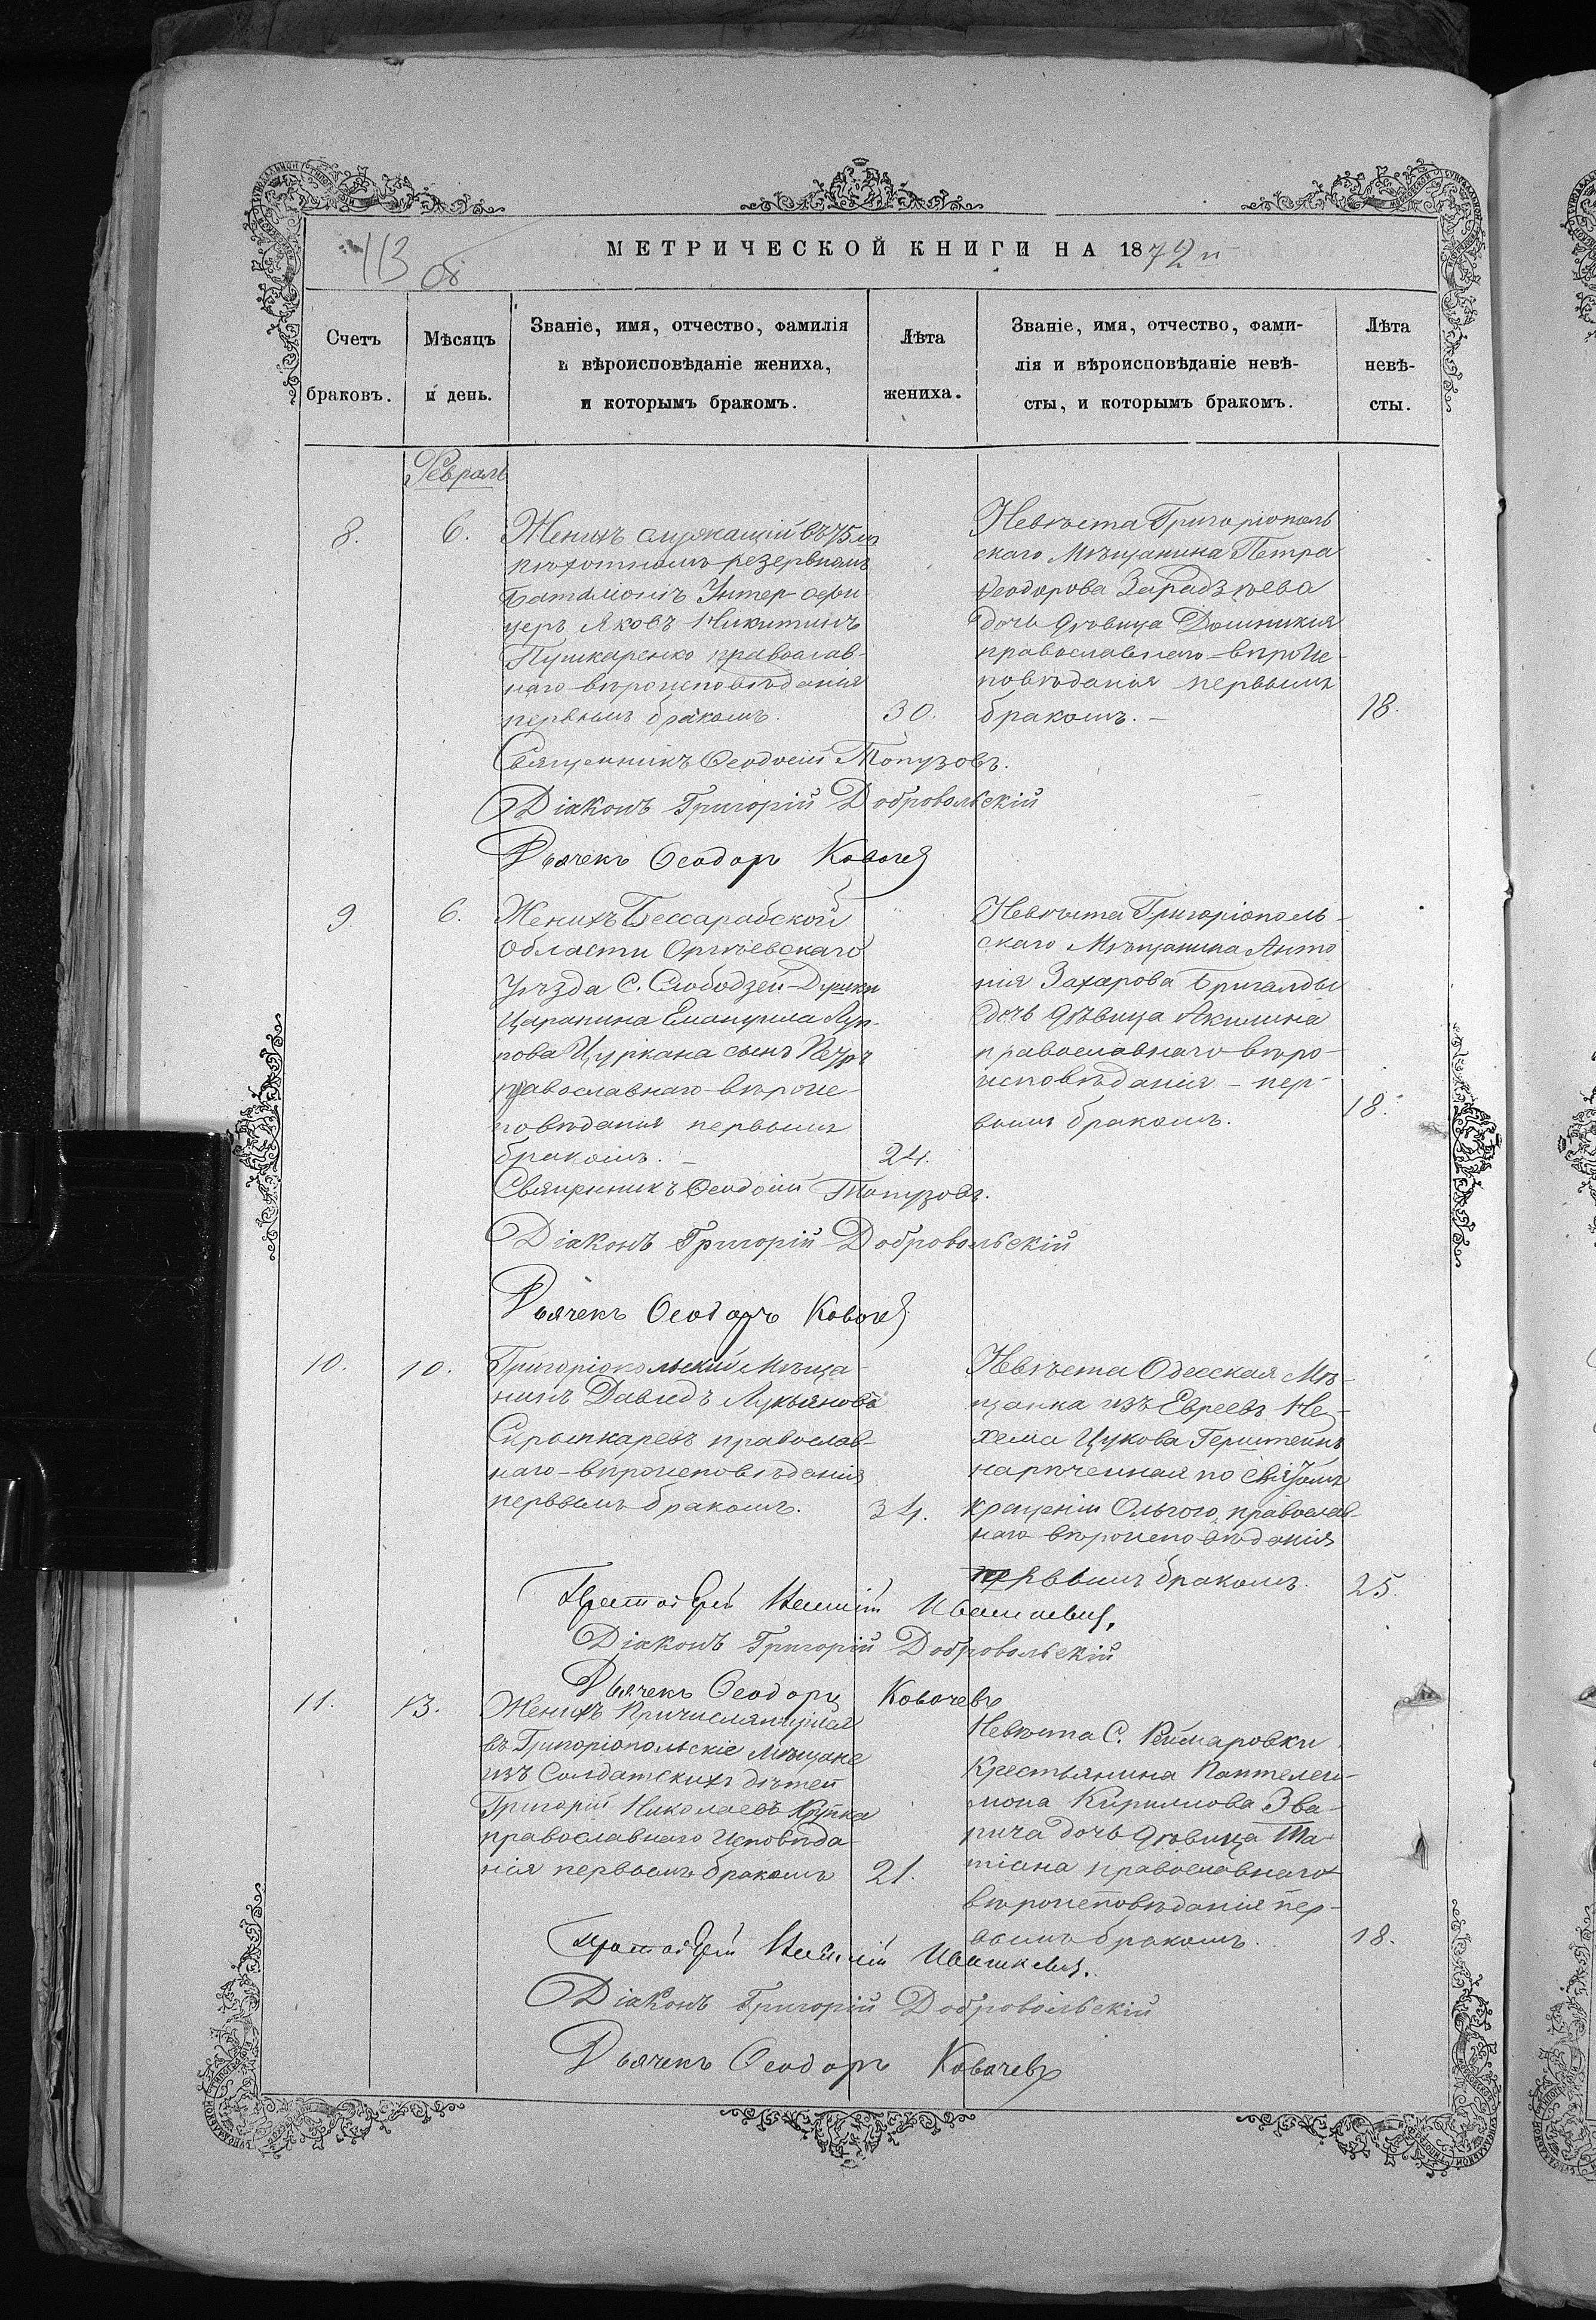 113 об
МЕТРИЧЕСКОЙ КНИГИ НА 1872й
Счетъ браковъ.
Мѣсяцъ и день.
Званіе, имя, отчество, фамилія
и вѣроисповѣданіе жениха,
и которымъ бракомъ.
Лѣта жениха.
Званіе, имя, отчество, фами-
лія и вѣроисповѣданіе невѣ-
сты, и которымъ бракомъ.
Лѣта невѣ-
сты.
Февраль
8.
6.
Женихъ служащій въ 75мъ
пѣхотномъ резервномъ
Баталіонѣ Унтер-офи
церъ Яковъ Никитинъ
Пушкаренко православ-
наго вѣроисповѣданія
первымъ бракомъ.
30.
Невѣста Григоріополь
скаго Мѣщанина Петра
Ѳеодорова
дочь дѣвица Домникія
православнаго вѣроис-
повѣданія первымъ
бракомъ. -
18.
Священникъ Ѳеодосій Топузовъ.
Діаконъ Григорій Добровольскій
Дьячекъ Ѳеодоръ Ковачев
9.
6.
Женихъ Бессарабской
Области Оргѣевскаго
Уѣзда С. Слободзеи-Душки
Царанина Емануила Луп-
пова Цуркана сынъ Петръ
православнаго вѣроис-
повѣданія первымъ
бракомъ. -
24.
Невѣста Григоріополь-
скаго Мѣщанина Анто
нія Захарова Бригалды
дочь дѣвица Акилина
православнаго вѣро-
исповѣданія - пер-
вымъ бракомъ.
18.
Священникъ Ѳеодосій Топузовъ.
Діаконъ Григорій Добровольскій
Дьячекъ Ѳеодоръ Ковачев
10.
10.
Григоріопольскій Мѣща-
нинъ Давидъ Лукьяновъ
православ-
наго вѣроисповѣданія
первымъ бракомъ.
34.
Невѣста Одесская Мѣ-
щанка изъ Евреевъ Не-
хема Цукова Герштейнъ
нареченная по святомъ
крещеніи Ольгою, православ-
наго вѣроисповѣданія
первымъ бракомъ.
25.
Протоіерей Ивашкевич.
Діаконъ Григорій Добровольскій
Дьячекъ Ѳеодоръ Ковачевъ
11.
13.
Женихъ Причисляющійся
въ Григоріопольскіе Мѣщане
изъ Солдатскихъ дѣтей
Григорій Николаевъ Крупка
православнаго Исповѣда
нія первымъ бракомъ
21.
Невѣста С. Реймаровки
Крестьянина Пантелей-
мона Кириллова Зва-
рича дочь дѣвица Та-
тіана православнаго
вѣроисповѣданія пер-
вымъ бракомъ.
18.
Протоіерей Ивашкевич.
Діаконъ Григорій Добровольскій
Дьячекъ Ѳеодоръ Ковачевъ